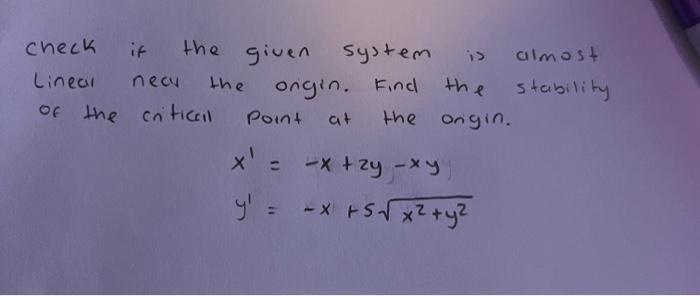 check if the given system is almost
Linear near the origin. Find the stability
of the critical point at the origin.
x' = -x + 2y - xy
y' = -x + 5√x²+y²